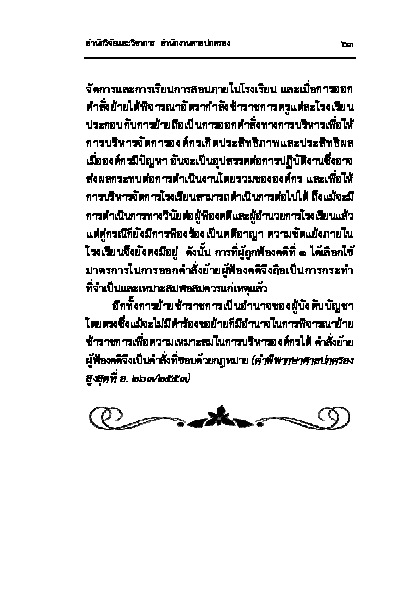 สำนักวิจัยและวิชาการ สำนักงานศาลปกครอง ๒๓
จัดการและการเรียนการสอนภายในโรงเรียน และเมื่อการออก
คำสั่งย้ายได้พิจารณาอัตรากำลังข้าราชการครูแต่ละโรงเรียน
ประกอบกับการย้ายถือเป็นการออกคำสั่งทางการบริหารเพื่อให้
การบริหารจัดการองค์กรเกิดประสิทธิภาพและประสิทธิผล
เมื่อองค์กรมีปัญหา อันจะเป็นอุปสรรคต่อการปฏิบัติงานซึ่งอาจ
ส่งผลกระทบต่อการดำเนินงานโดยรวมขององค์กร และเพื่อให้
การบริหารจัดการโรงเรียนสามารถดำเนินการต่อไปได้ ถึงแม้จะมี
การดำเนินการทางวินัยต่อผู้ฟ้องคดีและผู้อำนวยการโรงเรียนแล้ว
แต่คู่กรณีก็ยังมีการฟ้องร้องเป็นคดีอาญา ความขัดแย้งภายใน
โรงเรียนจึงยังคงมีอยู่ ดังนั้น การที่ผู้ถูกฟ้องคดีที่ ๑ ได้เลือกใช้
มาตรการในการออกคำสั่งย้ายผู้ฟ้องคดีจึงถือเป็นการกระทำ
ที่จำเป็นและเหมาะสมพอสมควรแก่เหตุแล้ว
อีกทั้งการย้ายข้าราชการเป็นอำนาจของผู้บังคับบัญชา
โดยตรงซึ่งแม้จะไม่มีคำร้องขอย้ายก็มีอำนาจในการพิจารณาย้าย
ข้าราชการเพื่อความเหมาะสมในการบริหารองค์กรได้ คำสั่งย้าย
ผู้ฟ้องคดีจึงเป็นคำสั่งที่ชอบด้วยกฎหมาย (คำพิพากษาศาลปกครอง
สูงสุดที่ อ.